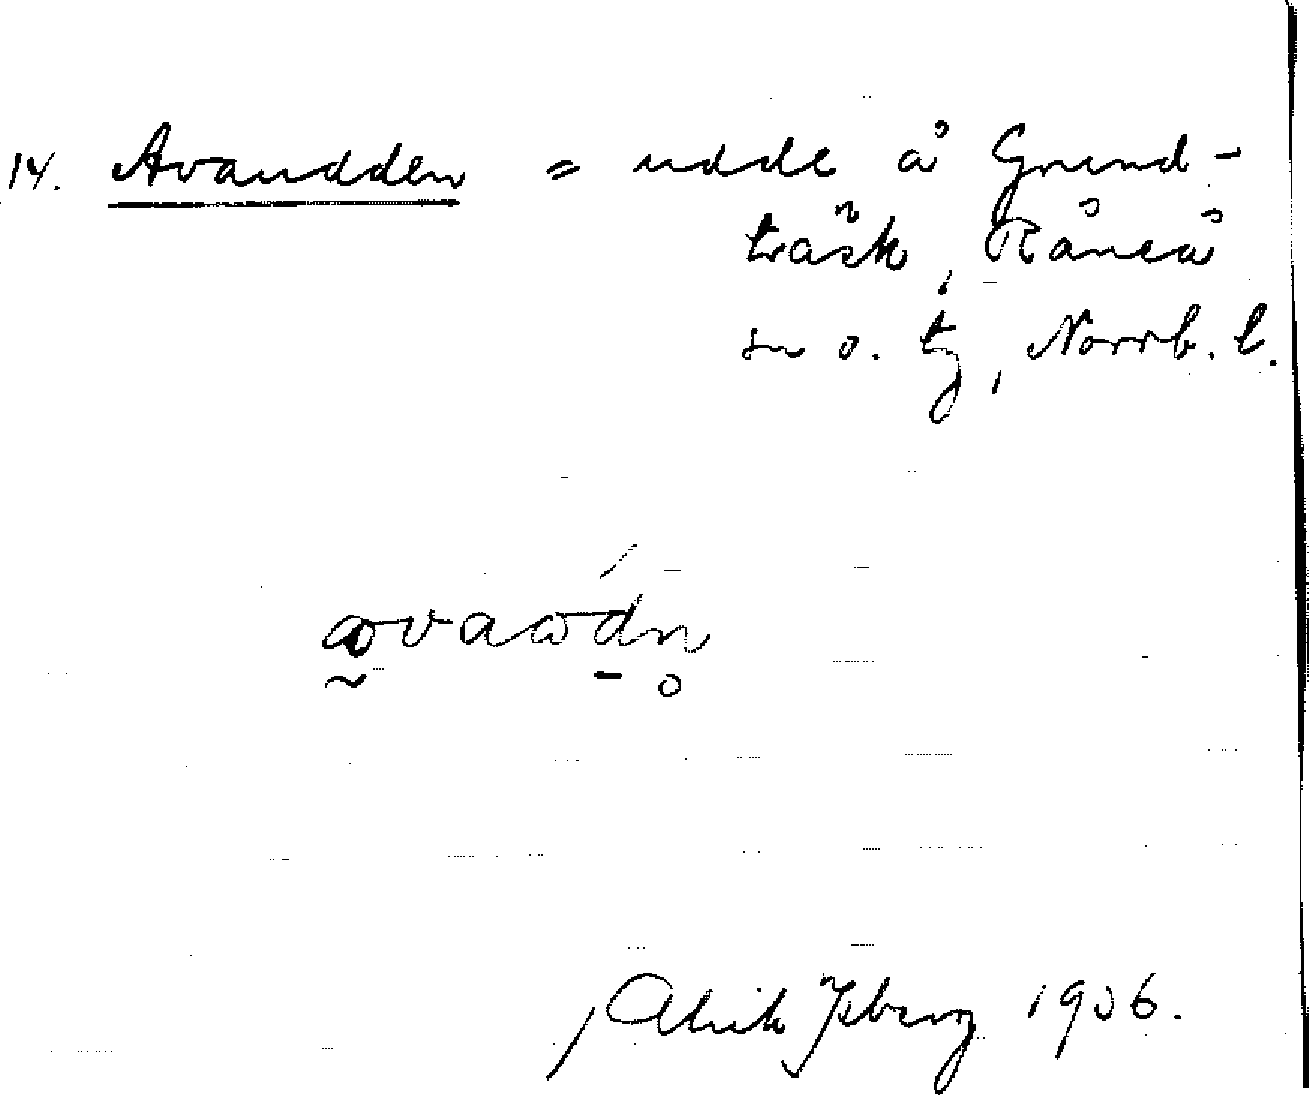 14. Avaudden = udde å Grund-
träsk, Råneå
sn o. tg, Norrb. l.
avaωdn
/Alrik Isberg 1906.